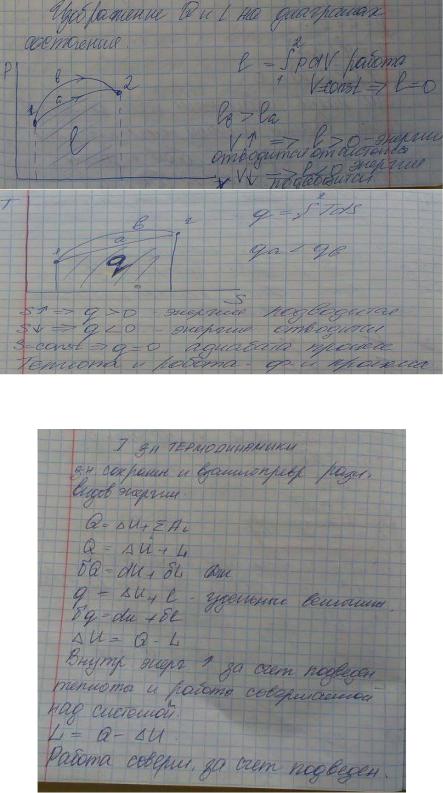 Изображение Q и L на диаграмах
состояния.
P
b
a
1
2
l
l = ∫ p dV работа
1
2
V=const => l=0
l_b > l_a
V↑ => l > 0 - энергия
отводится от системы
V↓ => l < 0 энергия
подводится
T
1
a
b
2
q
S
q = ∫ T ds
q_a < q_b
S↑ => q > 0 - энергия подводится
S↓ => q < 0 - энергия отводится
S-const => q = 0 адиабата процесс
Теплота и работа - ф-и процесса
I з-н ТЕРМОДИНАМИКИ
з-н сохранен и взаимопревр разл.
видов энергии.
Q = ΔU + ΣAi
Q = ΔU + L
δQ = dU + δL Дж
q = ΔU + l - удельные величины.
δq = du + δl
ΔU = Q - L
Внутр энерг ↑ за счет подведен
теплоты и работы совершаемой
над системой.
L = Q - ΔU
Работа соверш. за счет подведен.